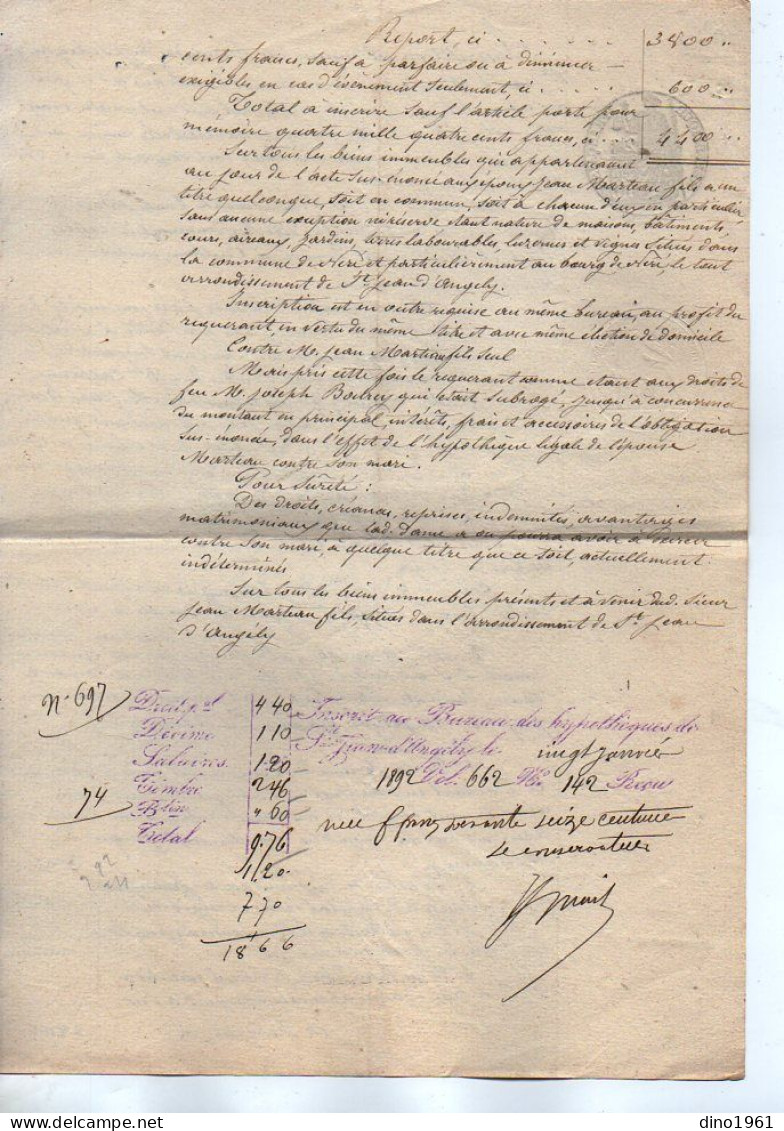 Report, ci . . . . . . . 3800 ..
cents francs, sauf à parfaire ou à diminuer
exigibles en cas d'évènement seulement, ci . . . . . 600 ..
Total à inscrire sauf l'article porté pour
mémoire quatre mille quatre cents francs, ci . . . 4400 ..
Sur tous les biens immeubles qui appartenaient
au jour de l'acte sus-énoncé aux époux Jean Marteau fils à un
titre quelconque, soit en commun, soit à chacun d'eux en particulier
sans aucune exception ni réserve étant nature de maisons, bâtiments,
cours, aireaux, jardins, terres labourables, luzernes et vignes situés dans
la commune de Néré et particulièrement au bourg de Néré, le tout
arrondissement de St Jean d'Angely.
Inscription est en outre requise au même bureau, au profit du
requerant, en vertu du même titre et avec même élection de domicile
Contre M. Jean Marteau fils seul
Mais pris cette fois le requerant comme étant aux droits de
feu M. Joseph qui était subrogé jusqu'à concurrence
du montant en principal, intérêts, frais et accessoires de l'obligation
sus-énoncée, dans l'effet de l'hypothèque légale de l'épouse
Marteau contre son mari.
Pour sûreté :
Des droits, créances, reprises, indemnités, avantages
matrimoniaux que lad. dame a ou pourra avoir à exercer
contre son mari, à quelque titre que ce soit, actuellement
indéterminés
Sur tous les biens immeubles présents et à venir dud. Sieur
Jean Marteau fils, situés dans l'arrondissement de St Jean
D'Angély
No 697
Droit pel 4 40
Décime 1 10
Salaires 1 20
Timbre 2 46
Btin " 60
Total 9.76
1.20
7 70
18 66
74
Inscrit au Bureau des hypothèques de
St Jean-d'Angély le vingt janvier
1892 Vol. 662 No. 142 Reçu
neuf francs soixante seize centimes
Le conservateur
dino1961